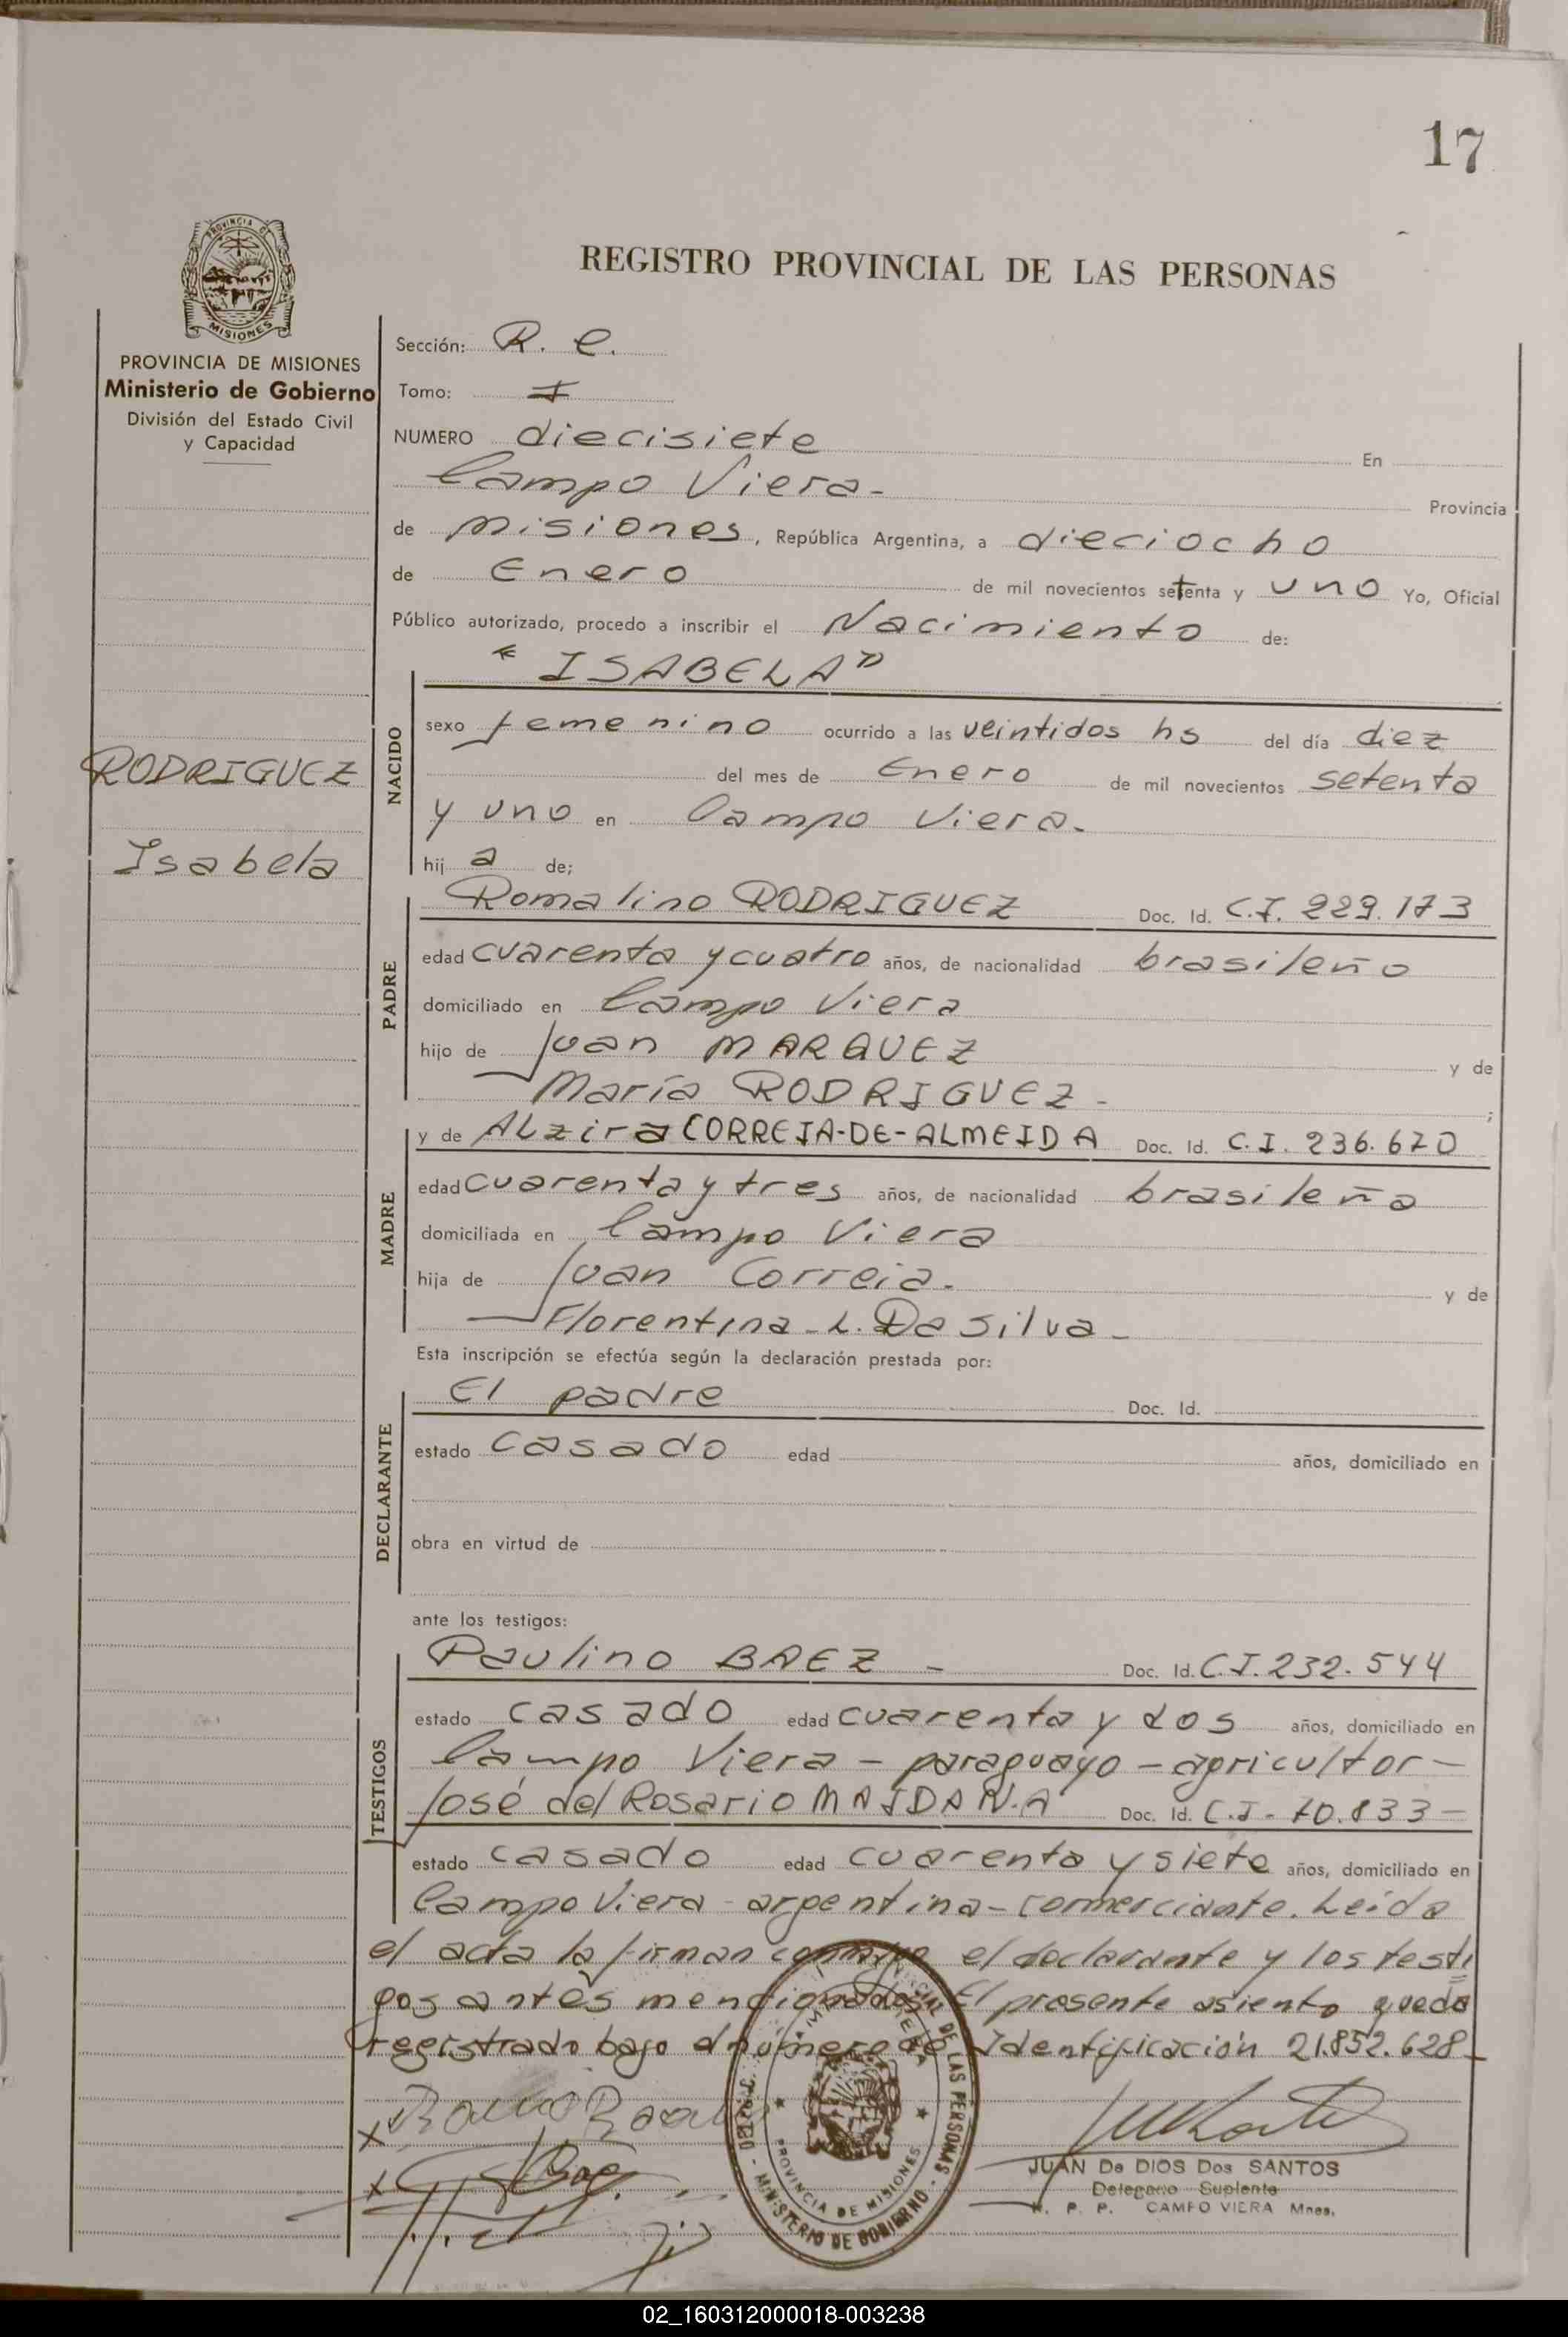 17
PROVINCIA DE
MISIONES
REGISTRO PROVINCIAL DE LAS PERSONAS
PROVINCIA DE MISIONES
Ministerio de Gobierno
División del Estado Civil
y Capacidad
RODRIGUEZ
Isabela
Sección: R. C.
Tomo: I
NUMERO diecisiete En
Campo Viera- Provincia
de Misiones, República Argentina, a dieciocho
de Enero de mil novecientos setenta y uno Yo, Oficial
Público autorizado, procedo a inscribir el Nacimiento de:
"ISABELA"
NACIDO
sexo femenino ocurrido a las veintidos hs del día diez
del mes de Enero de mil novecientos setenta
y uno en Campo Viera.
hija de;
PADRE
Romalino RODRIGUEZ Doc. Id. C.I. 229.173
edad cuarenta y cuatro años, de nacionalidad brasileño
domiciliado en Campo Viera
hijo de Juan MARQUEZ y de
María RODRIGUEZ- ;
MADRE
y de ALzira CORREIA-DE-ALMEIDA Doc. Id. C.I. 236.670
edad cuarenta y tres años, de nacionalidad brasileña
domiciliada en Campo Viera
hija de Juan Correia. y de
Florentina-L. Da Silva-
Esta inscripción se efectúa según la declaración prestada por:
DECLARANTE
El padre Doc. Id.
estado casado edad años, domiciliado en
obra en virtud de
ante los testigos:
TESTIGOS
Paulino BAEZ - Doc. Id. C.I. 232.544
estado casado edad cuarenta y dos años, domiciliado en
Campo Viera - paraguayo - agricultor -
José del Rosario MAIDANA Doc. Id. C.I- 70.833-
estado casado edad cuarenta y siete años, domiciliado en
Campo Viera - argentina - comerciante. Leida
el acta la firman conmigo el declarante y los testi
gos antes mencionados. El presente asiento queda
registrado bajo el número de Identificación 21.852.628-
x
x
MINISTERIO DE GOBIERNO
PROVINCIA DE MISIONES
DE LAS PERSONAS
JUAN De DIOS Dos SANTOS
Delegado Suplente
R. P. P. CAMPO VIERA Mnes.
02_160312000018-003238